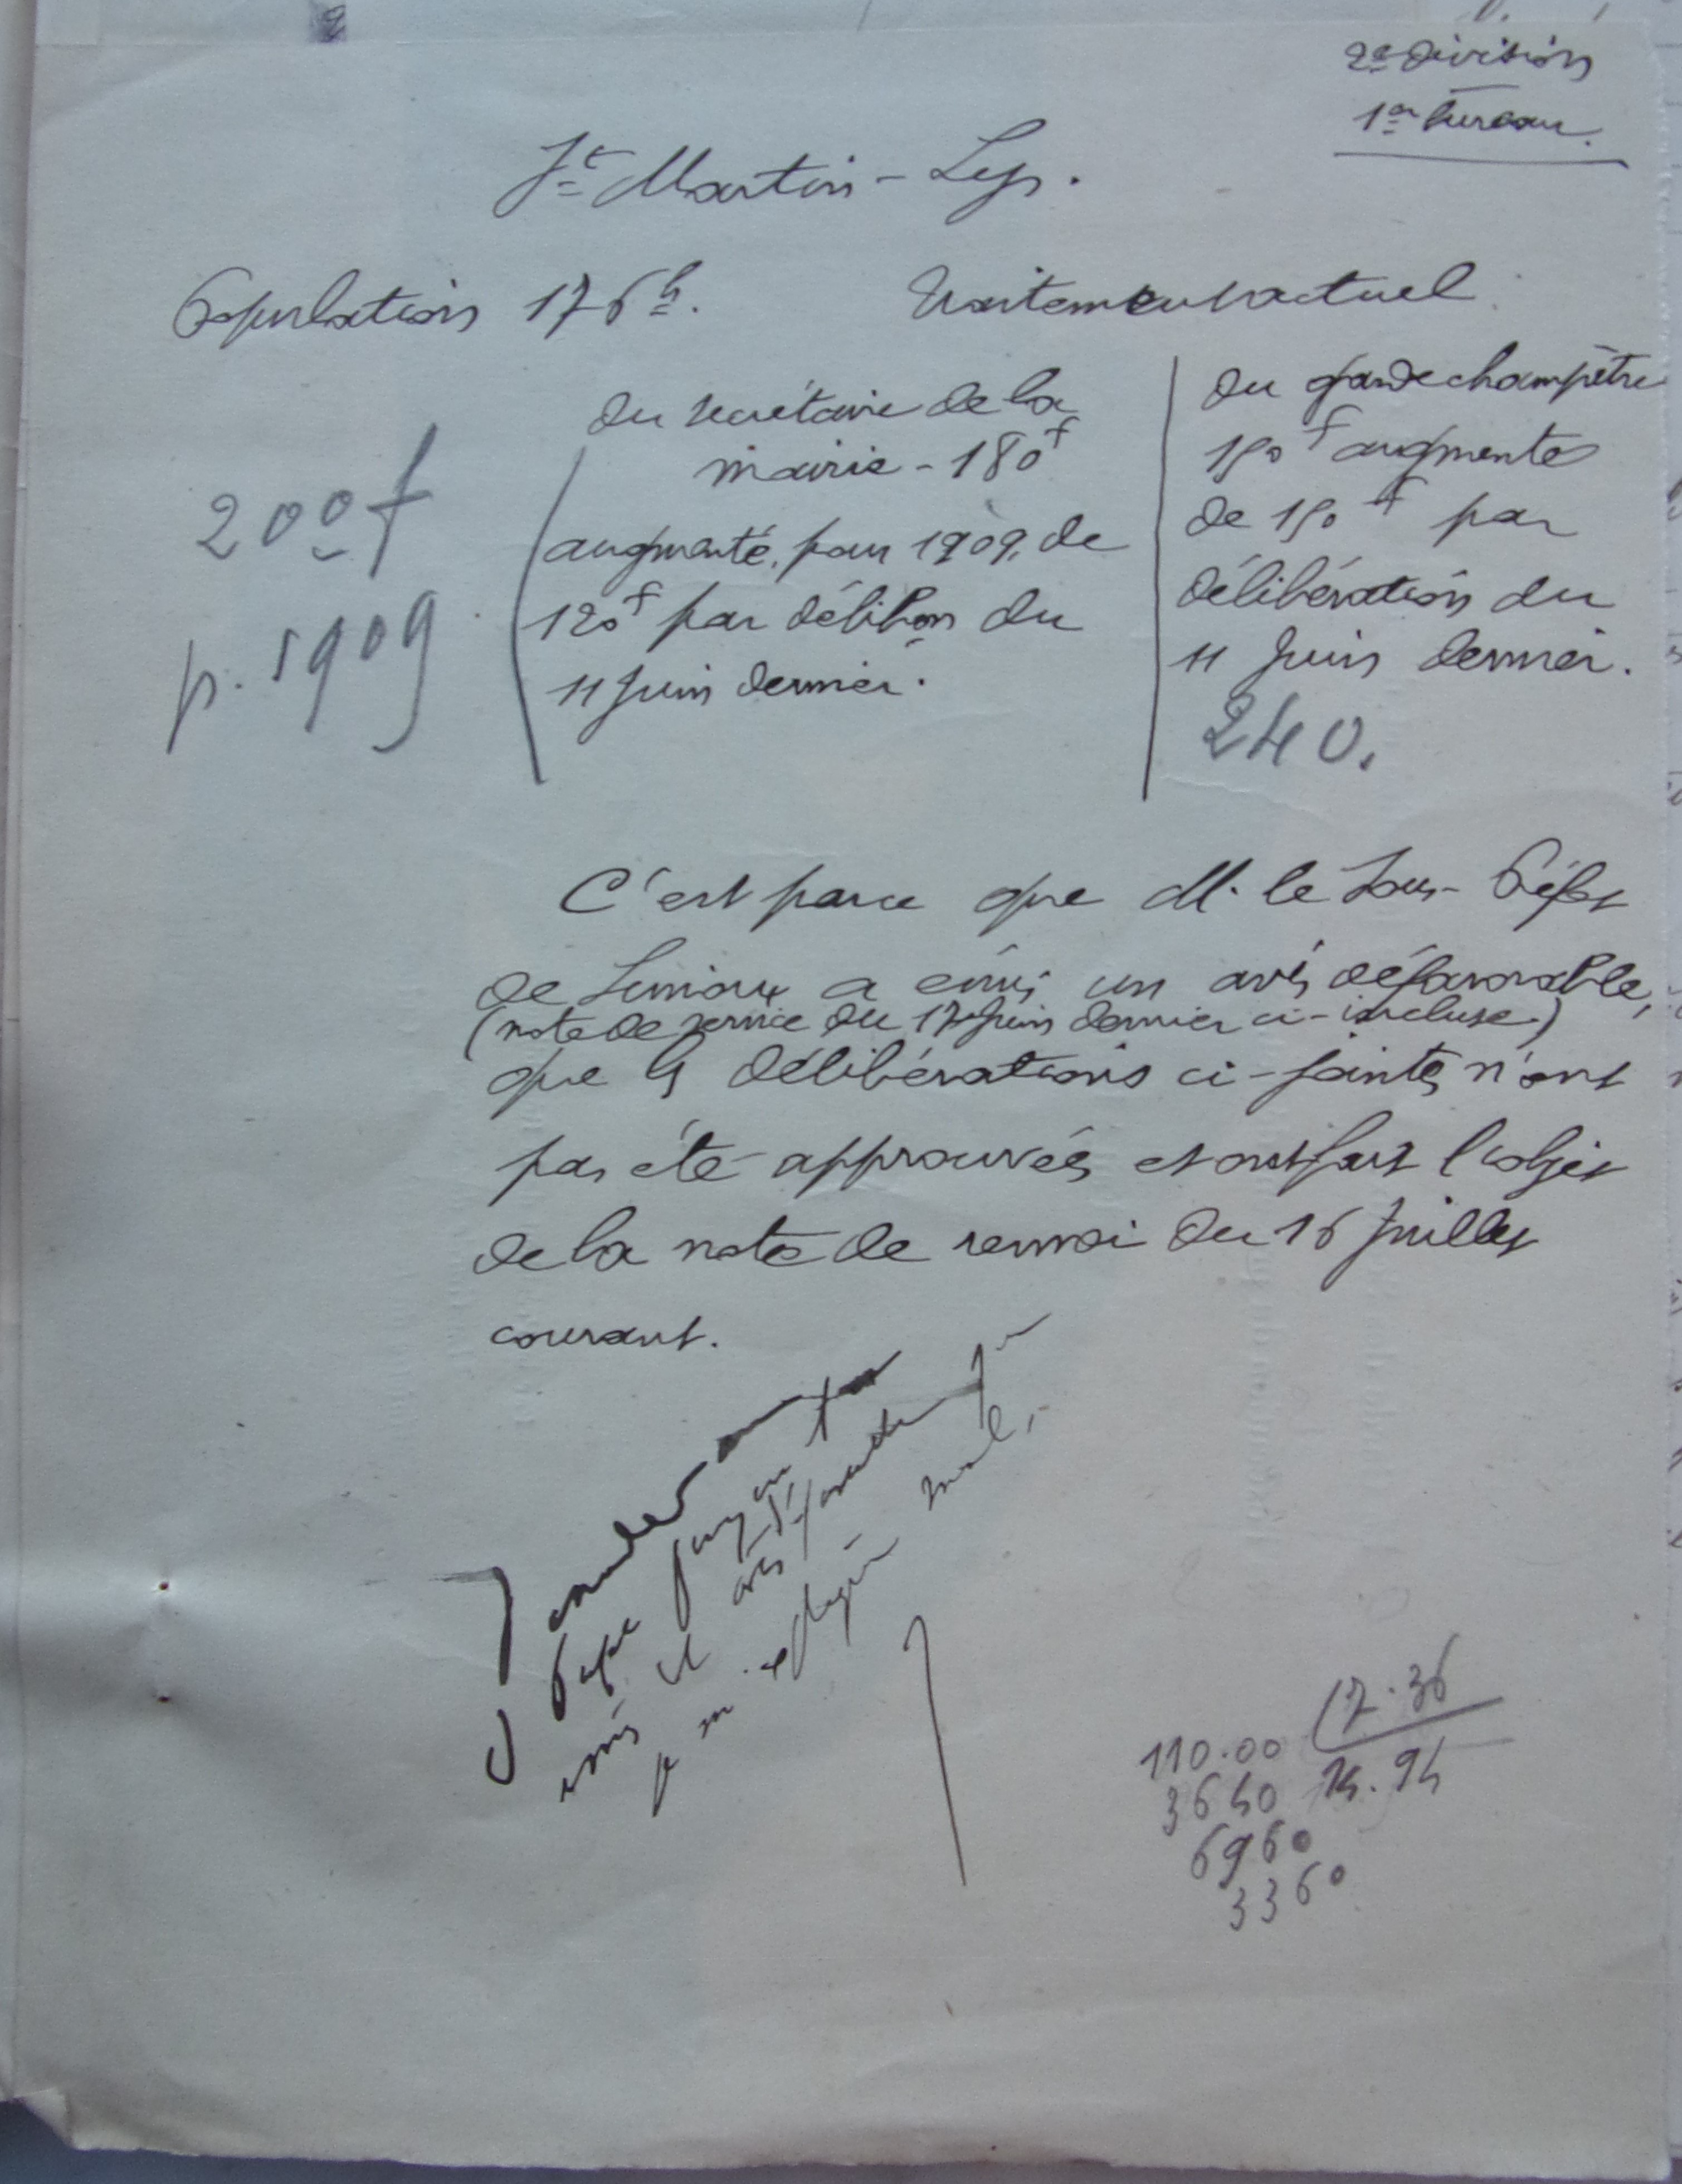 2e Division
1er bureau.
St Martin-Lys.
Population 176 h. Traitement actuel
du secrétaire de la
mairie - 180f
augmenté, pour 1909, de
120f par délibon du
11 Juin dernier.
200f
p. 1909
du garde champêtre
150f augmenté
de 150f par
délibération du
11 Juin dernier.
240.
C'est parce que M. le Sous-Préfet
de Limoux a émis un avis défavorable,
(note de service du 17 Juin dernier ci-incluse.)
que les délibérations ci-jointes n'ont
pas été approuvées et ont fait l'objet
de la note de renvoi du 16 Juillet
courant.
avis défavorable
110.00 17.36
3640 14.94
6960
3360